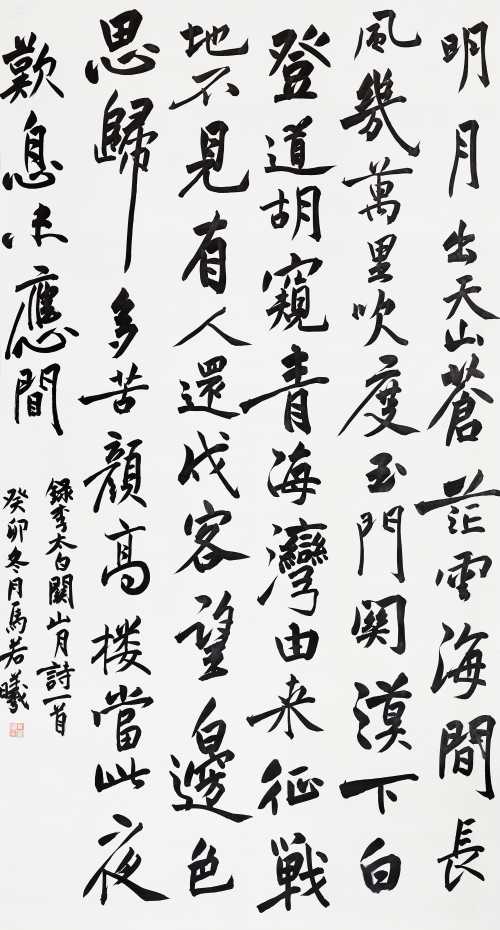 明月出天山蒼茫雲海間長
風幾萬里吹度玉門関漢下白
登道胡窺青海灣由来征戦
地不見有人還戍客望邊色
思歸多苦顏高楼當此夜
歎息未應間
録李太白關山月詩一首
癸卯冬月馬若曦